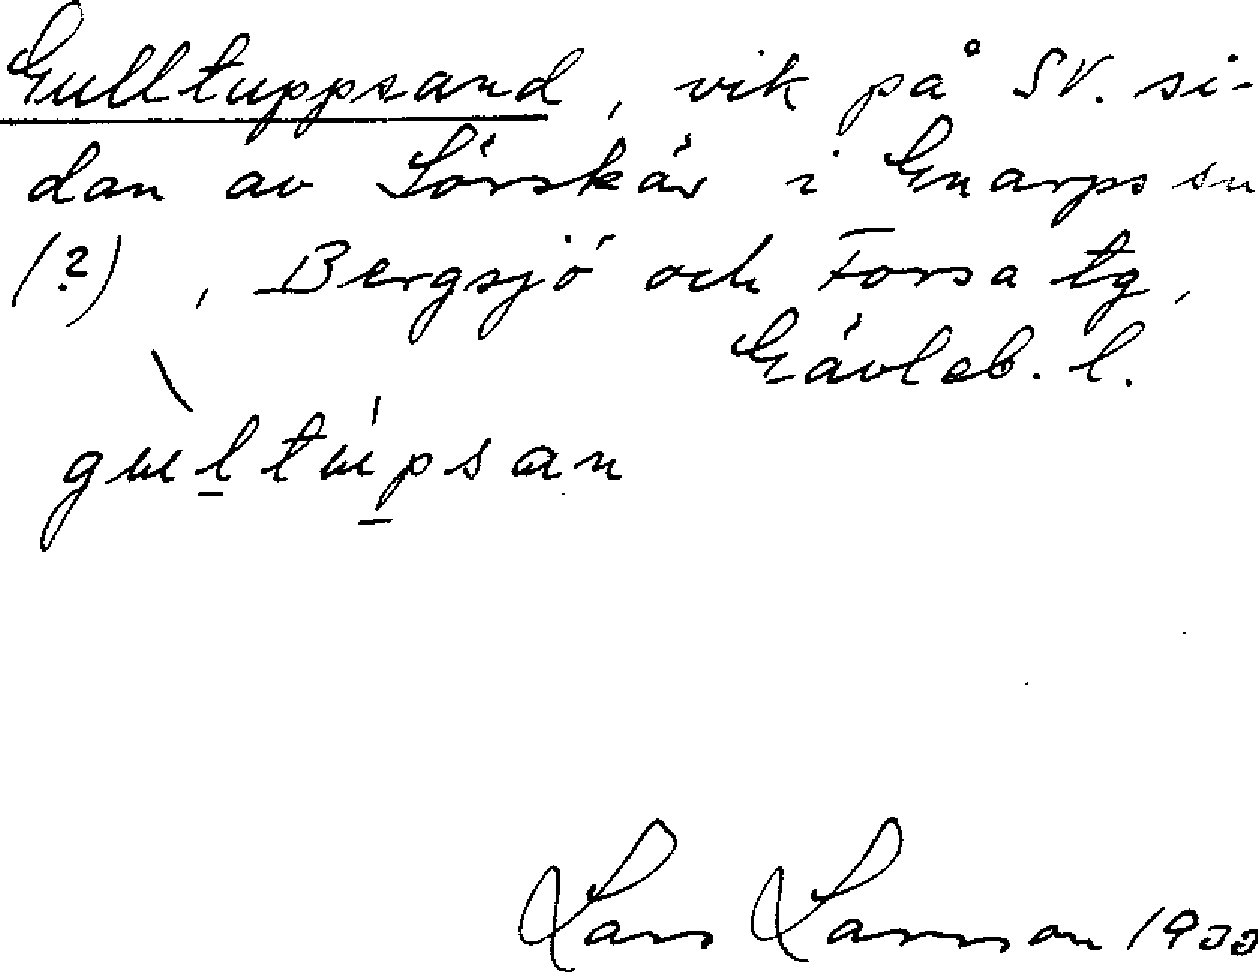 Gulltuppsand, vik på SV. si-
dan av Sörskär i Gnarps sn
(?), Bergsjö och Forsa tg,
Gävleb. l.
gɯltɯpsan
Lars Larsson 1933